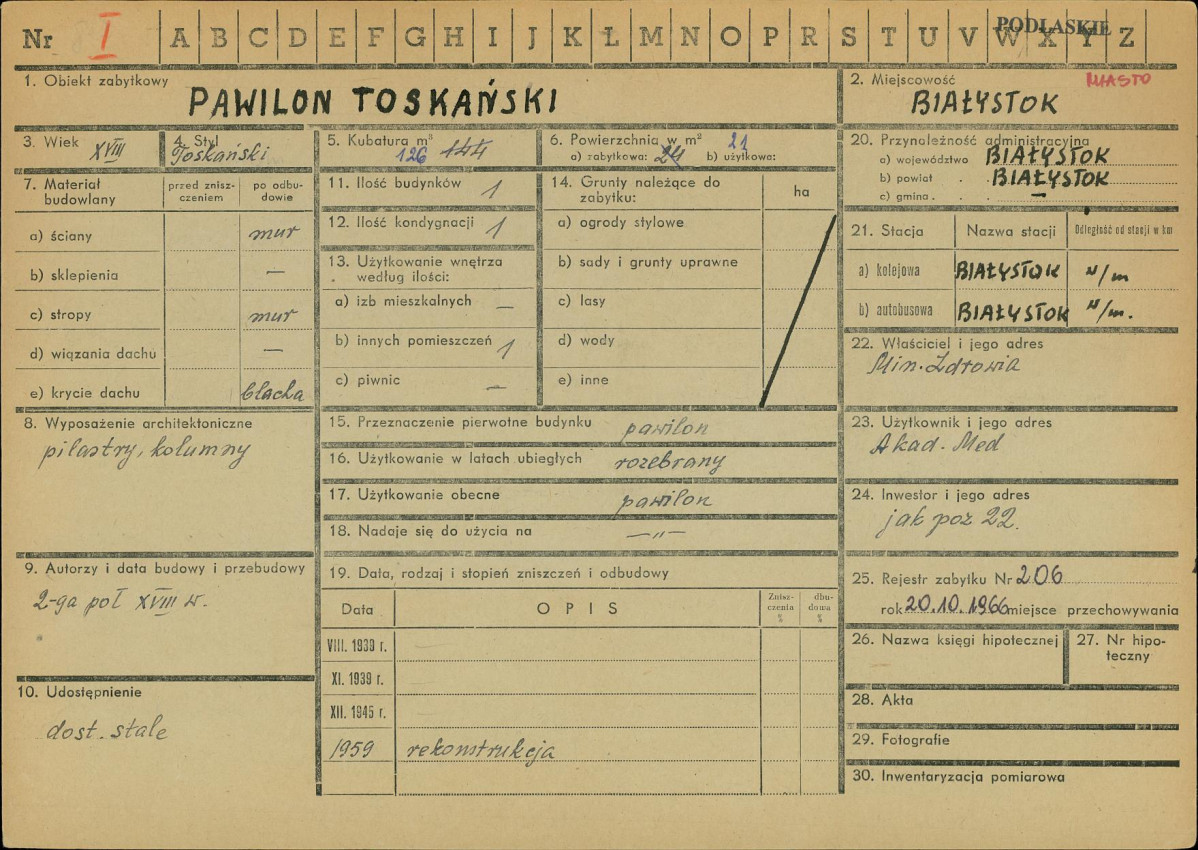 Nr I A B C D E F G H I J K Ł M N O P R S T U V W X Y Z
PODLASKIE
1. Obiekt zabytkowy
PAWILON TOSKAŃSKI
2. Miejscowość MIASTO
BIAŁYSTOK
3. Wiek XVIII
4. Styl
Toskański
5. Kubatura m³
126 144
6. Powierzchnia w m² 21
a) zabytkowa: 24 b) użytkowa:
7. Materiał budowlany
przed znisz-
czeniem
po odbu-
dowie
a) ściany mur
b) sklepienia —
c) stropy mur
d) wiązania dachu —
e) krycie dachu blacha
8. Wyposażenie architektoniczne
pilastry, kolumny
9. Autorzy i data budowy i przebudowy
2-ga poł XVIII w.
10. Udostępnienie
dost. stale
11. Ilość budynków 1
12. Ilość kondygnacji 1
13. Użytkowanie wnętrza
według ilości:
a) izb mieszkalnych —
b) innych pomieszczeń 1
c) piwnic —
14. Grunty należące do
zabytku:
ha
a) ogrody stylowe
b) sady i grunty uprawne
c) lasy
d) wody
e) inne
15. Przeznaczenie pierwotne budynku pawilon
16. Użytkowanie w latach ubiegłych rozebrany
17. Użytkowanie obecne pawilon
18. Nadaje się do użycia na —„—
19. Data, rodzaj i stopień zniszczeń i odbudowy
Data OPIS
Znisz-
czenia
%
dbu-
dowa
%
VIII. 1939 r.
XI. 1939 r.
XII. 1945 r.
1959 rekonstrukcja
20. Przynależność administracyjna
a) województwo BIAŁYSTOK
b) powiat . . BIAŁYSTOK
c) gmina . . . —
21. Stacja Nazwa stacji Odległość od stacji w km
a) kolejowa BIAŁYSTOK n/m
b) autobusowa BIAŁYSTOK n/m.
22. Właściciel i jego adres
Min. Zdrowia
23. Użytkownik i jego adres
Akad. Med
24. Inwestor i jego adres
jak poz 22.
25. Rejestr zabytku Nr 206
rok 20.10.1966 miejsce przechowywania
26. Nazwa księgi hipotecznej
27. Nr hipo-
teczny
28. Akta
29. Fotografie
30. Inwentaryzacja pomiarowa